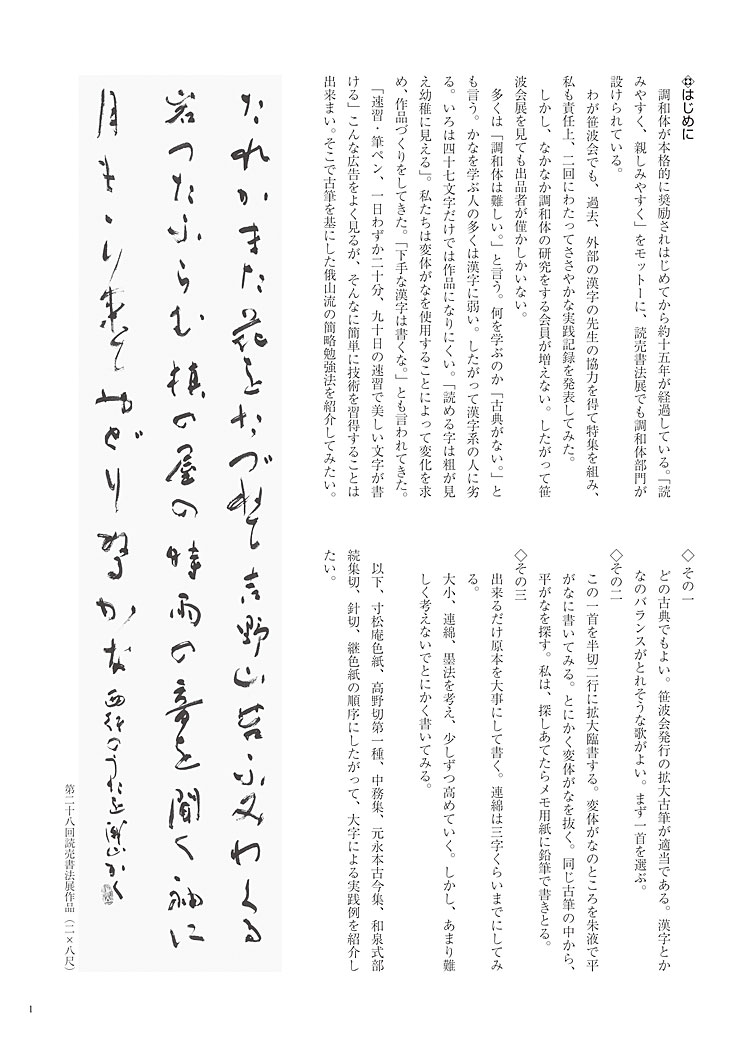 はじめに
調和体が本格的に奨励されはじめてから約十五年が経過している。「読
みやすく、親しみやすく」をモットーに、読売書法展でも調和体部門が
設けられている。
わが笹波会でも、過去、外部の漢字の先生の協力を得て特集を組み、
私も責任上、二回にわたってささやかな実践記録を発表してみた。
しかし、なかなか調和体の研究をする会員が増えない。したがって笹
波会展を見ても出品者が僅かしかいない。
多くは「調和体は難しい。」と言う。何を学ぶのか「古典がない。」と
も言う。かなを学ぶ人の多くは漢字に弱い。したがって漢字系の人に劣
る。いろは四十七文字だけでは作品になりにくい。「読める字は粗が見
え幼稚に見える」。私たちは変体がなを使用することによって変化を求
め、作品づくりをしてきた。「下手な漢字は書くな。」とも言われてきた。
「速習・筆ペン、一日わずか二十分、九十日の速習で美しい文字が書
ける」こんな広告をよく見るが、そんなに簡単に技術を習得することは
出来まい。そこで古筆を基にした俄山流の簡略勉強法を紹介してみたい。
◇その一
どの古典でもよい。笹波会発行の拡大古筆が適当である。漢字とか
なのバランスがとれそうな歌がよい。まず一首を選ぶ。
◇その二
この一首を半切二行に拡大臨書する。変体がなのところを朱液で平
がなに書いてみる。とにかく変体がなを抜く。同じ古筆の中から、
平がなを探す。私は、探しあてたらメモ用紙に鉛筆で書きとる。
◇その三
出来るだけ原本を大事にして書く。連綿は三字くらいまでにしてみ
る。
大小、連綿、墨法を考え、少しずつ高めていく。しかし、あまり難
しく考えないでとにかく書いてみる。
以下、寸松庵色紙、高野切第一種、中務集、元永本古今集、和泉式部
続集切、針切、継色紙の順序にしたがって、大字による実践例を紹介し
たい。
たれかまた花をたづねて吉野山苔ふみわくる
岩つたふらむ槙の屋の時雨の音を聞く袖に
月ももり来てやどりぬるかな 西行のうたを 俄山かく
第二十八回読売書法展作品（二×八尺）
1